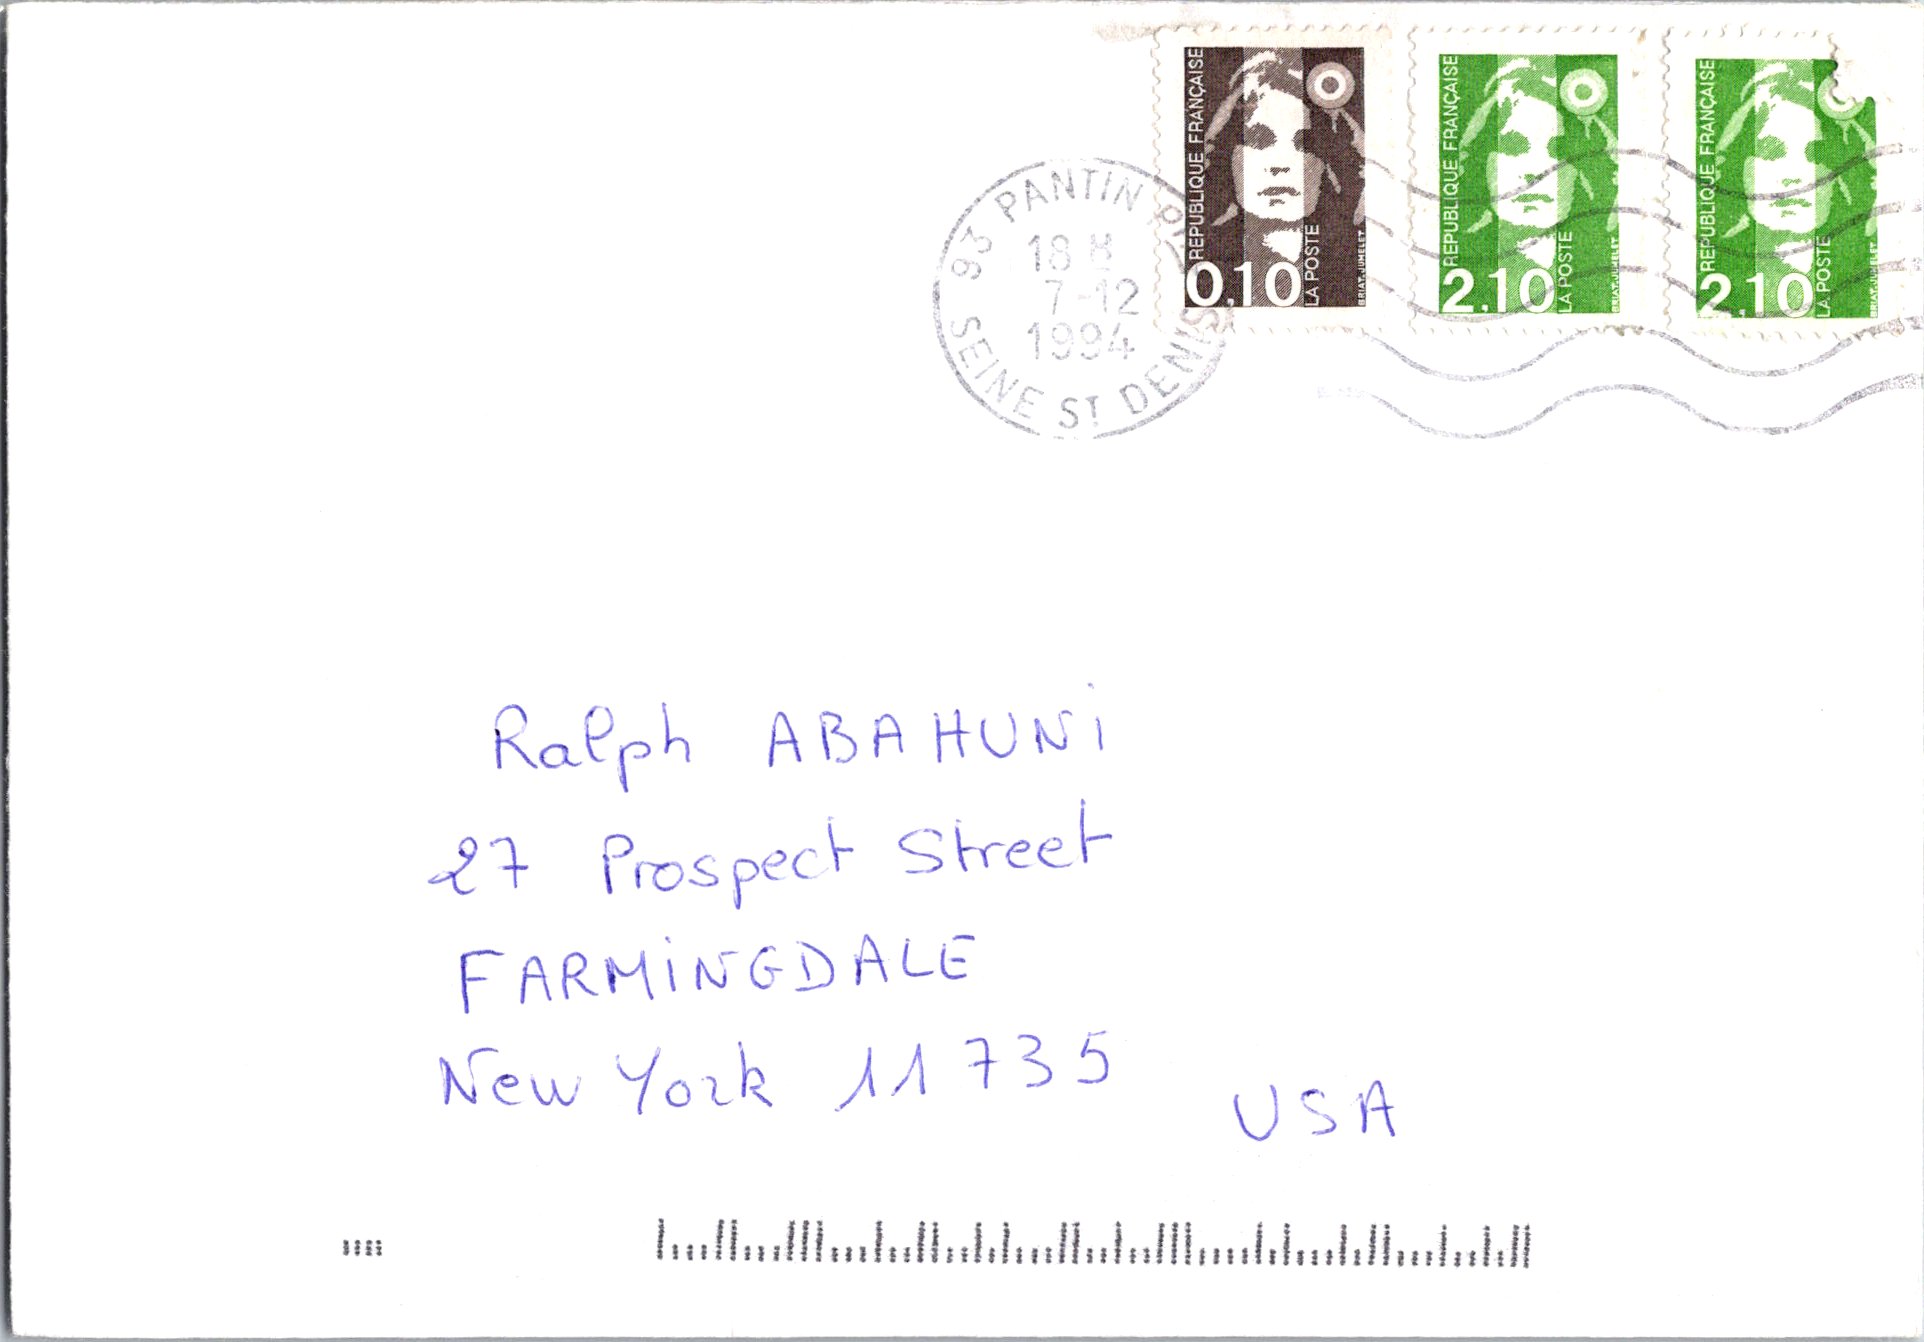 RÉPUBLIQUE FRANÇAISE
0,10
LA POSTE
BRIAT-JUMELET
RÉPUBLIQUE FRANÇAISE
2,10
LA POSTE
BRIAT-JUMELET
RÉPUBLIQUE FRANÇAISE
2,10
LA POSTE
BRIAT-JUMELET
93 PANTIN
18 H
7-12
1994
SEINE ST DENIS
Ralph ABAHUNi
27 Prospect Street
FARMiNGDALE
New York 11735
USA